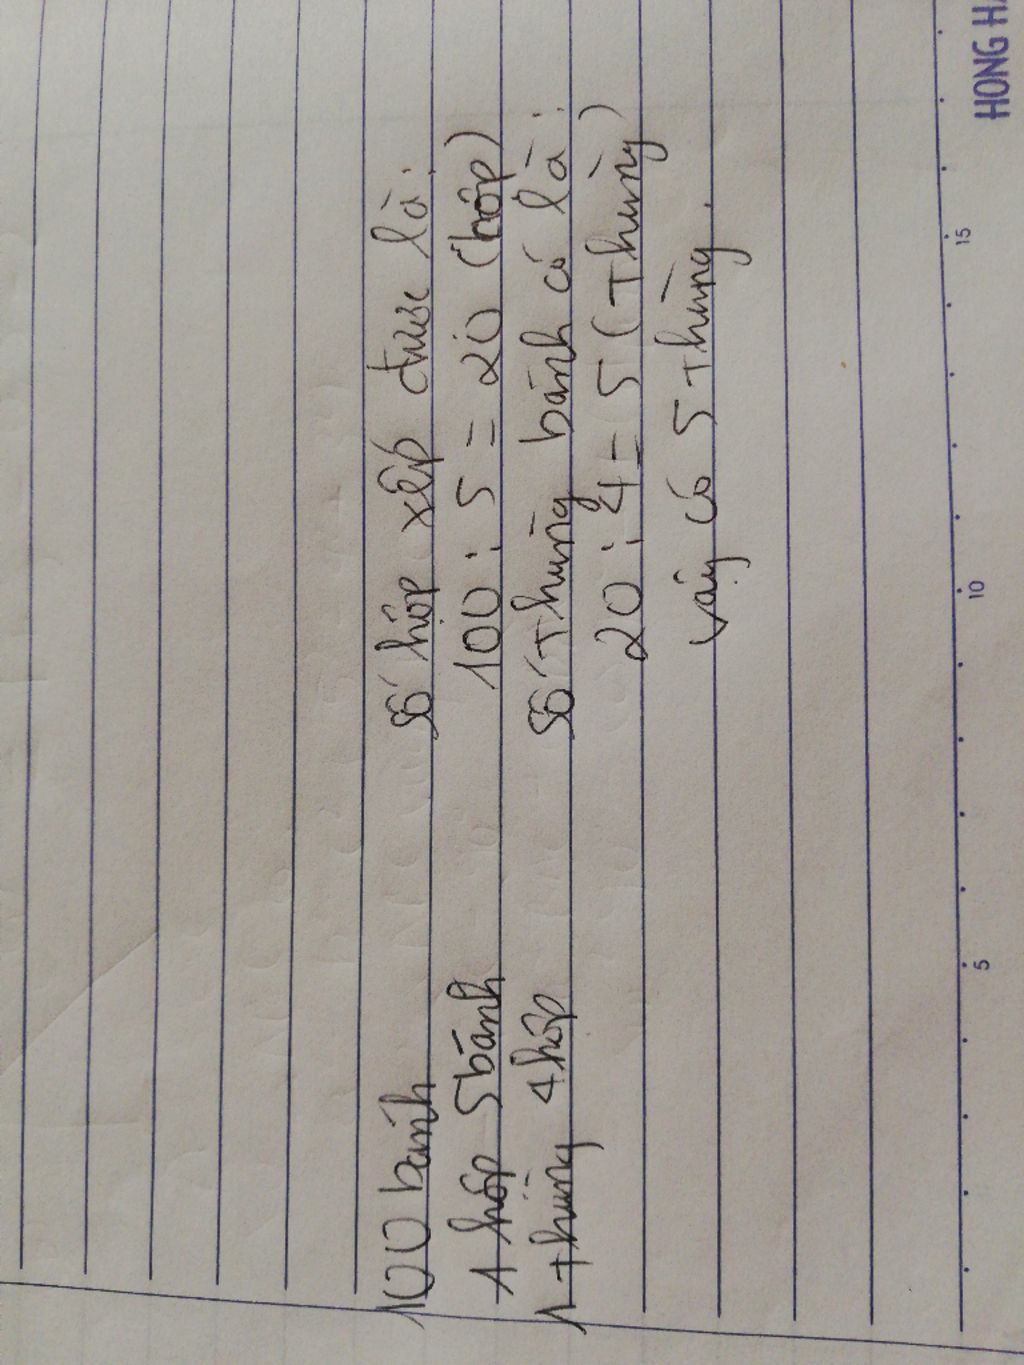 100 bánh
1 hộp 5 bánh
1 thùng 4 hộp
số hộp xếp được là:
100 : 5 = 20 (hộp)
số thùng bánh có là:
20 : 4 = 5 (thùng)
vậy có 5 thùng.
5 10 15
HONG HA